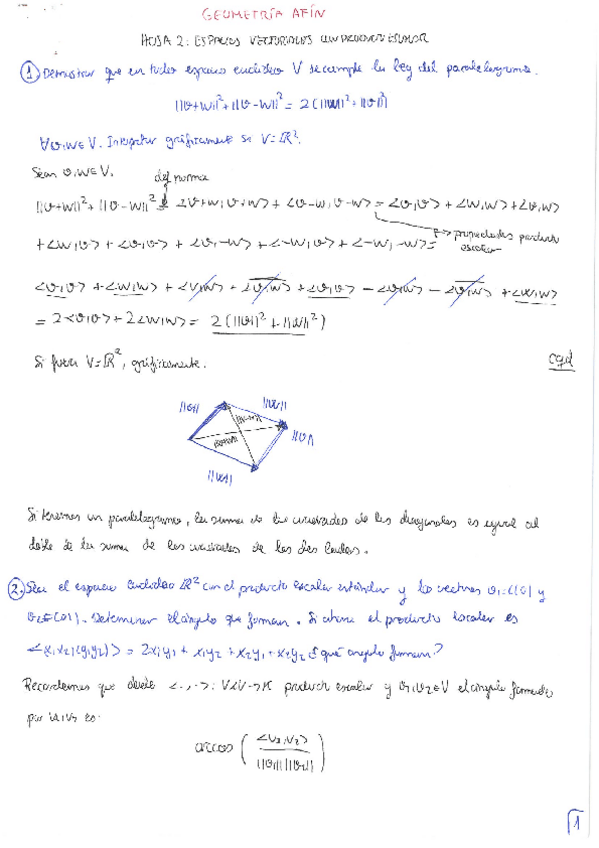 GEOMETRÍA AFÍN
HOJA 2: ESPACIOS VECTORIALES CON PRODUCTO ESCALAR
1 Demostrar que en todo espacio euclídeo V se cumple la ley del paralelogramo.
||v+w||² + ||v-w||² = 2(||w||² + ||v||²)
∀v,w∈V. Interpretar gráficamente si V=ℝ².
Sean v,w∈V.
def norma
||v+w||² + ||v-w||² = <v+w,v+w> + <v-w,v-w> = <v,v> + <w,w> + <v,w>
propiedades producto escalar
+ <w,v> + <v,v> + <v,-w> + <-w,v> + <-w,-w> =
<v,v> + <w,w> + <v,w> + <v,w> + <v,v> - <v,w> - <v,w> + <w,w>
= 2<v,v> + 2<w,w> = 2(||v||² + ||w||²)
Si fuera V=ℝ², gráficamente. cqd
||v|| ||w||
||v-w||
||v+w|| ||v||
||w||
Si tenemos un paralelogramo, la suma de los cuadrados de las diagonales es igual al
doble de la suma de los cuadrados de los dos lados.
2. Sea el espacio euclídeo ℝ² con el producto escalar estándar y los vectores v₁=(1,0) y
v₂=(0,1). Determinar el ángulo que forman. Si ahora el producto escalar es
<x₁x₂,(y₁y₂)> = 2x₁y₁ + x₁y₂ + x₂y₁ + x₂y₂ ¿qué ángulo forman?
Recordemos que dado <.,.>: V×V→K producto escalar y v₁,v₂∈V el ángulo formado
por v₁,v₂ es:
arccos ( <v₁,v₂> / ||v₁|| ||v₂|| )
1